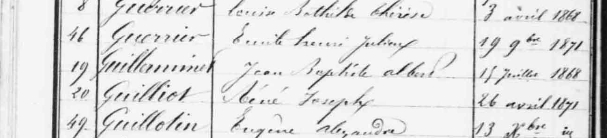 8 Guerrier Louis Mathilde Thérèse 3 avril 1861
46 Guerrier Emile Henri Julien 19 9bre 1871
19 Guilleminet Jean Baptiste Albert 15 Juillet 1868
20 Guilliot Réné Joseph 26 avril 1871
49 Guillotin Eugène Alexandre 13 Xbre